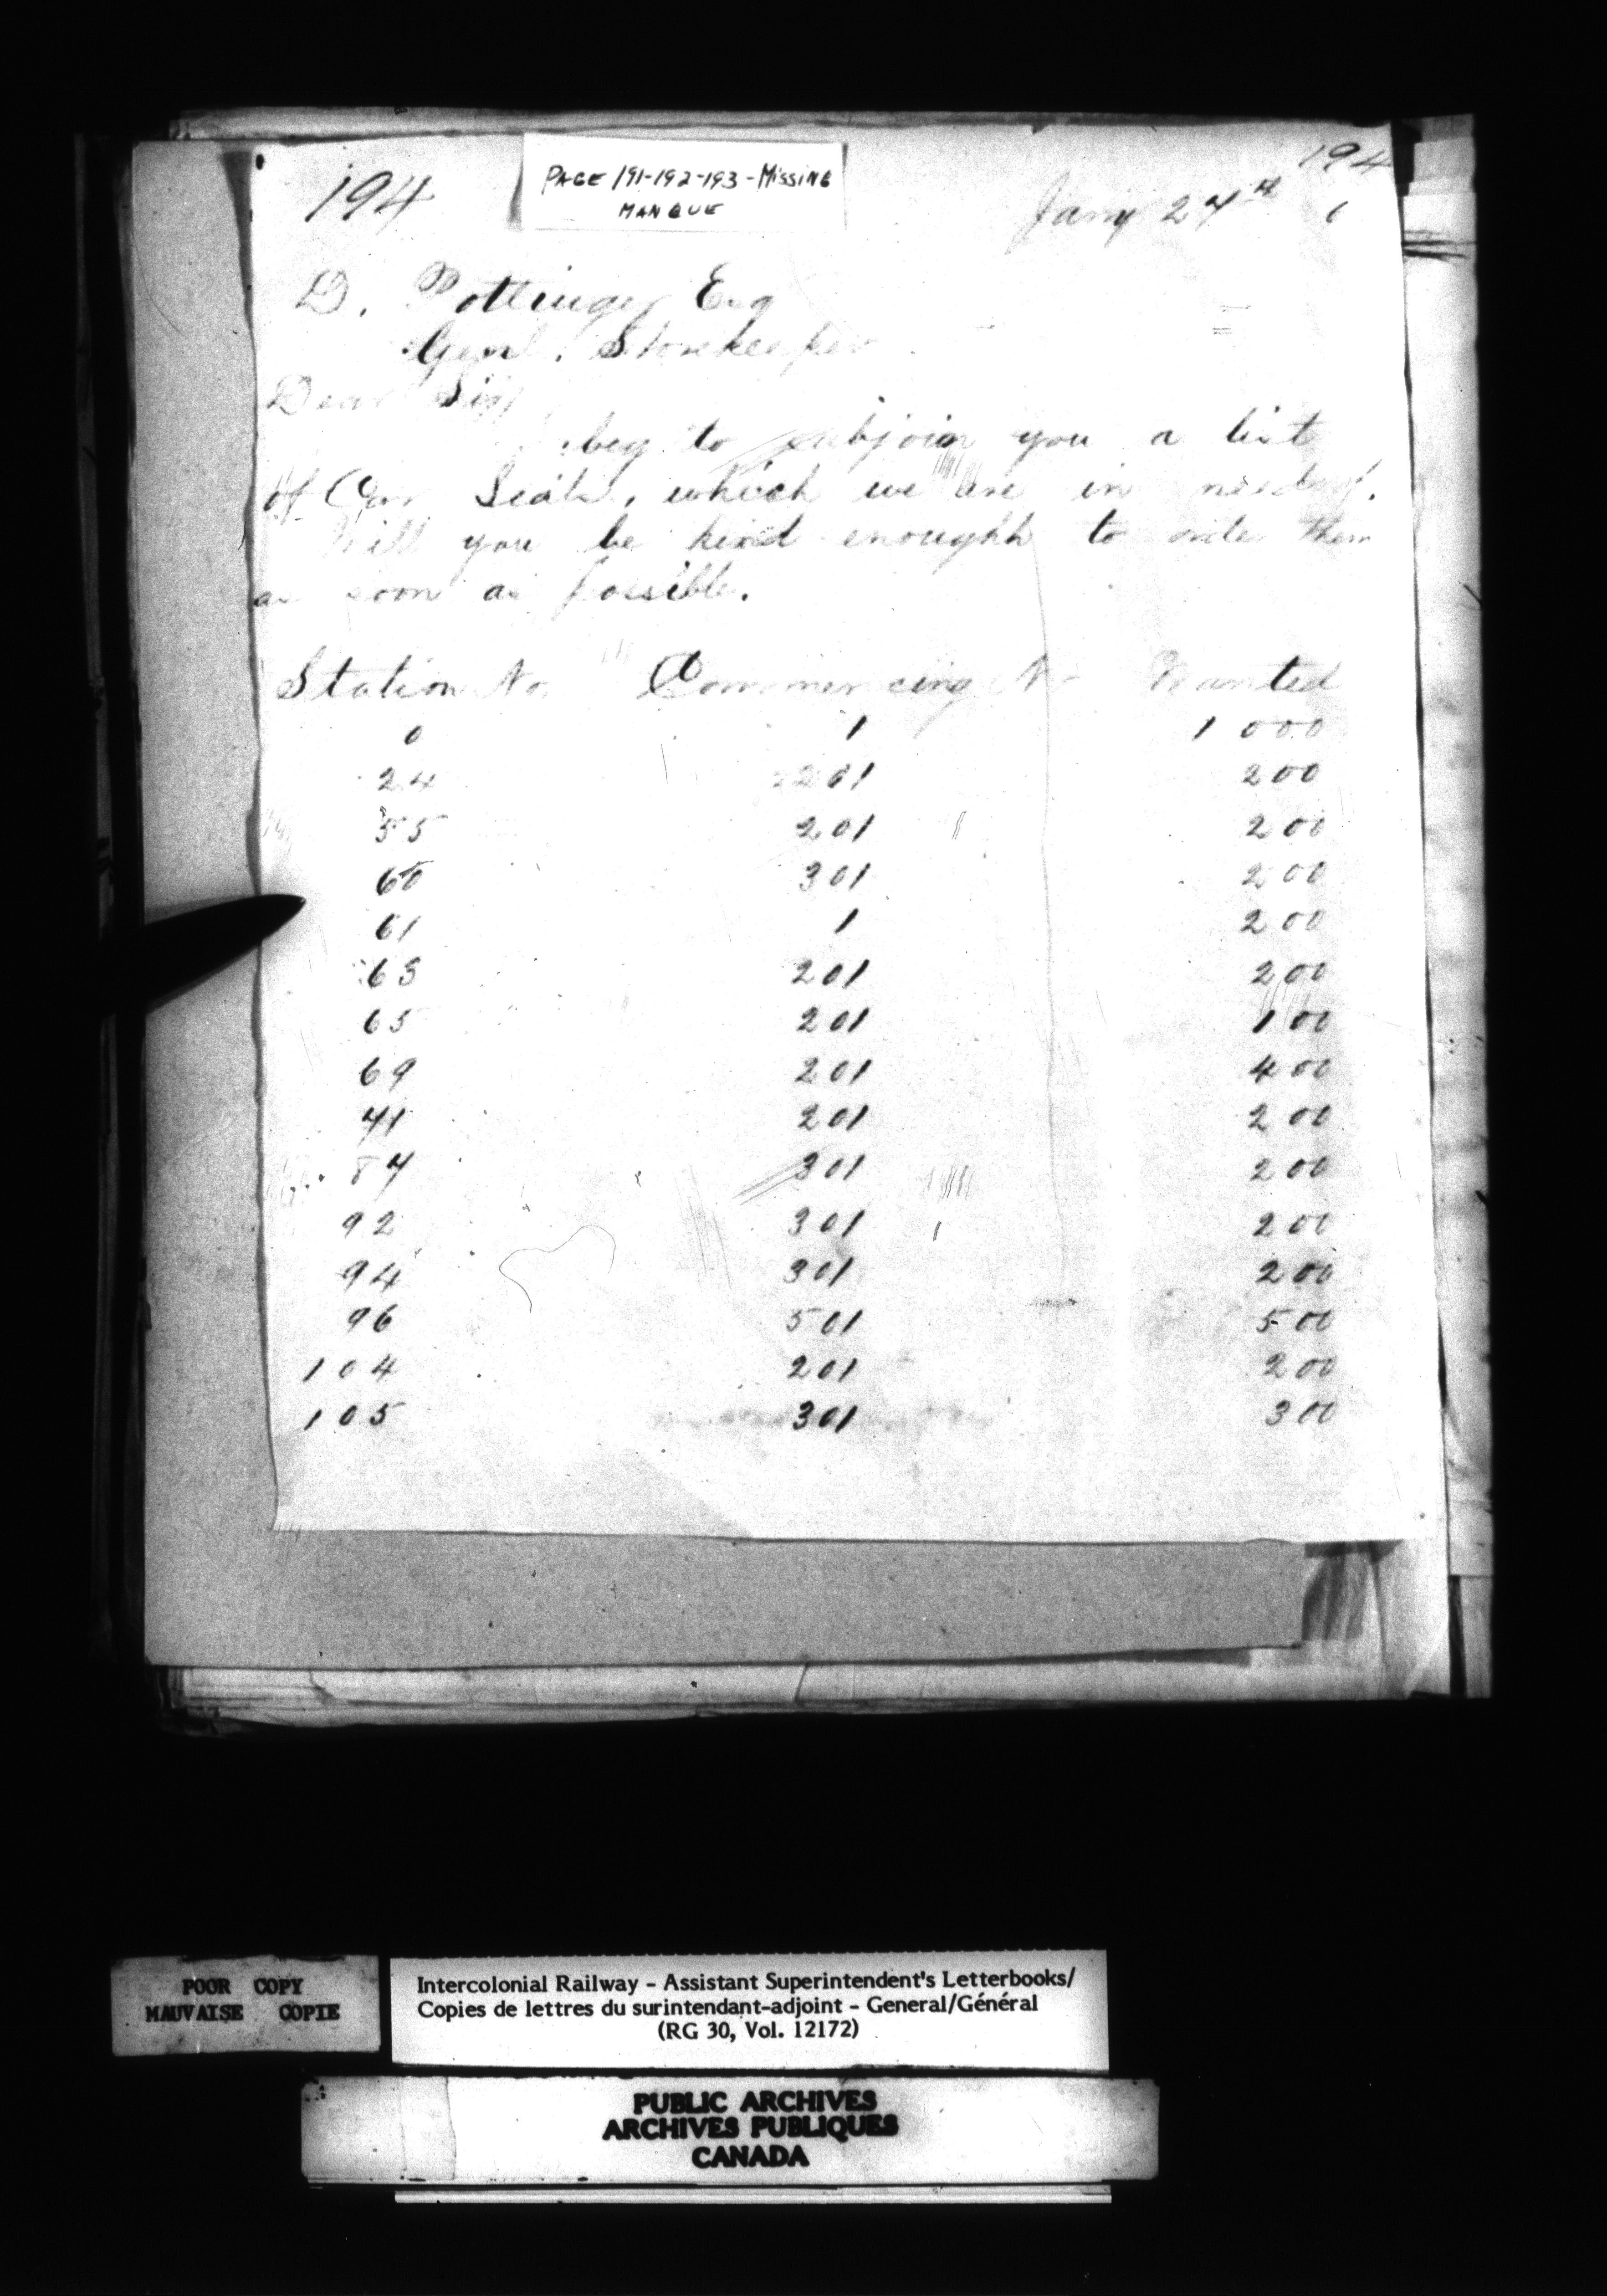 194
PAGE 191-192-193-MISSING
MANQUE
194
Jany 27th 6
D. Pottinger Esq
Genl. Storekeeper
Dear Sir
beg to subjoin you a list
of Car Seals, which we are in need of.
Will you be kind enoughh to order them
as soon as possible.
Station No Commencing No Wanted
0 1 1000
24 2201 200
55 201 200
60 301 200
61 1 200
63 201 200
65 201 100
69 201 400
71 201 200
87 301 200
92 301 200
94 301 200
96 501 500
104 201 200
105 301 300
POOR COPY
MAUVAISE COPIE
Intercolonial Railway - Assistant Superintendent's Letterbooks/
Copies de lettres du surintendant-adjoint - General/Général
(RG 30, Vol. 12172)
PUBLIC ARCHIVES
ARCHIVES PUBLIQUES
CANADA